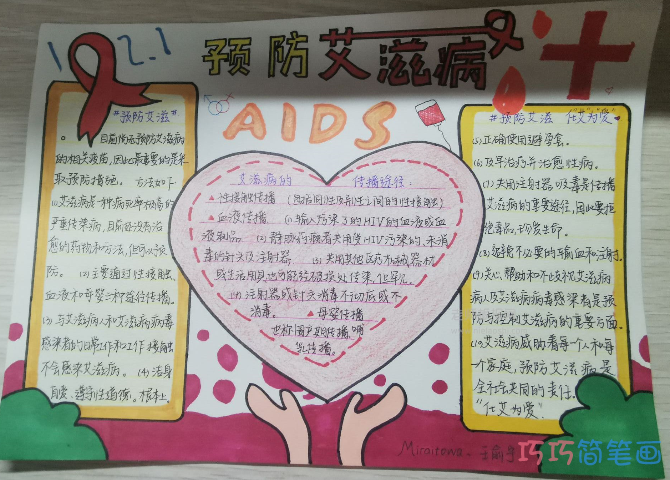 12.1
预防艾滋病
AIDS
"预防艾滋"
目前尚无预防艾滋病
的相关疫苗，因此最重要的是采
取预防措施。方法如下
(1)艾滋病是一种病死率极高的
严重传染病，目前还没有治
愈的药物和方法，但可以预
防。(2)主要通过性接触、
血液和母婴三种途径传播。
(3)与艾滋病人和艾滋病病毒
感染者的日常工作和工作接触
不会感染艾滋病。(4)洁身
自爱、遵守性道德。根本
艾滋病的 传播途径：
▲性接触传播（包括同性及异性之间的性接触）
▲血液传播 (1)输入污染了的HIV的血液或血
液制品 (2)静脉药瘾者共用受HIV污染的、未消
毒的针头及注射器 (3)共用其他医疗器械或
或生活用具也可能经破损处传染，但罕见。
(4)注射器或针灸消毒不彻底或不
消毒。▲母婴传播
也称围产期传播
乳传播。
"预防艾滋 仁"艾"为"爱"
(5)正确使用避孕套。
(6)及早治疗并治愈性病。
(7)共用注射器吸毒是传播
艾滋病的重要途径，因此要拒
绝毒品，珍爱生命。
(8)避免不必要的输血和注射。
(9)关心、帮助和不歧视艾滋病
病人及艾滋病病毒感染者是预
防与控制艾滋病的重要方面。
艾滋病威胁着每一个人和每
一个家庭，预防艾滋病是
全社会共同的责任。
"仁艾为爱"
Miraitowa
巧巧简笔画